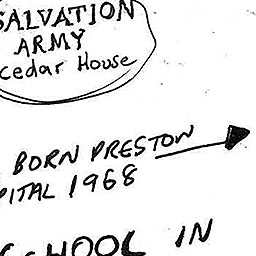 SALVATION
ARMY
cedar House
BORN PRESTON
PITAL 1968
SCHOOL IN